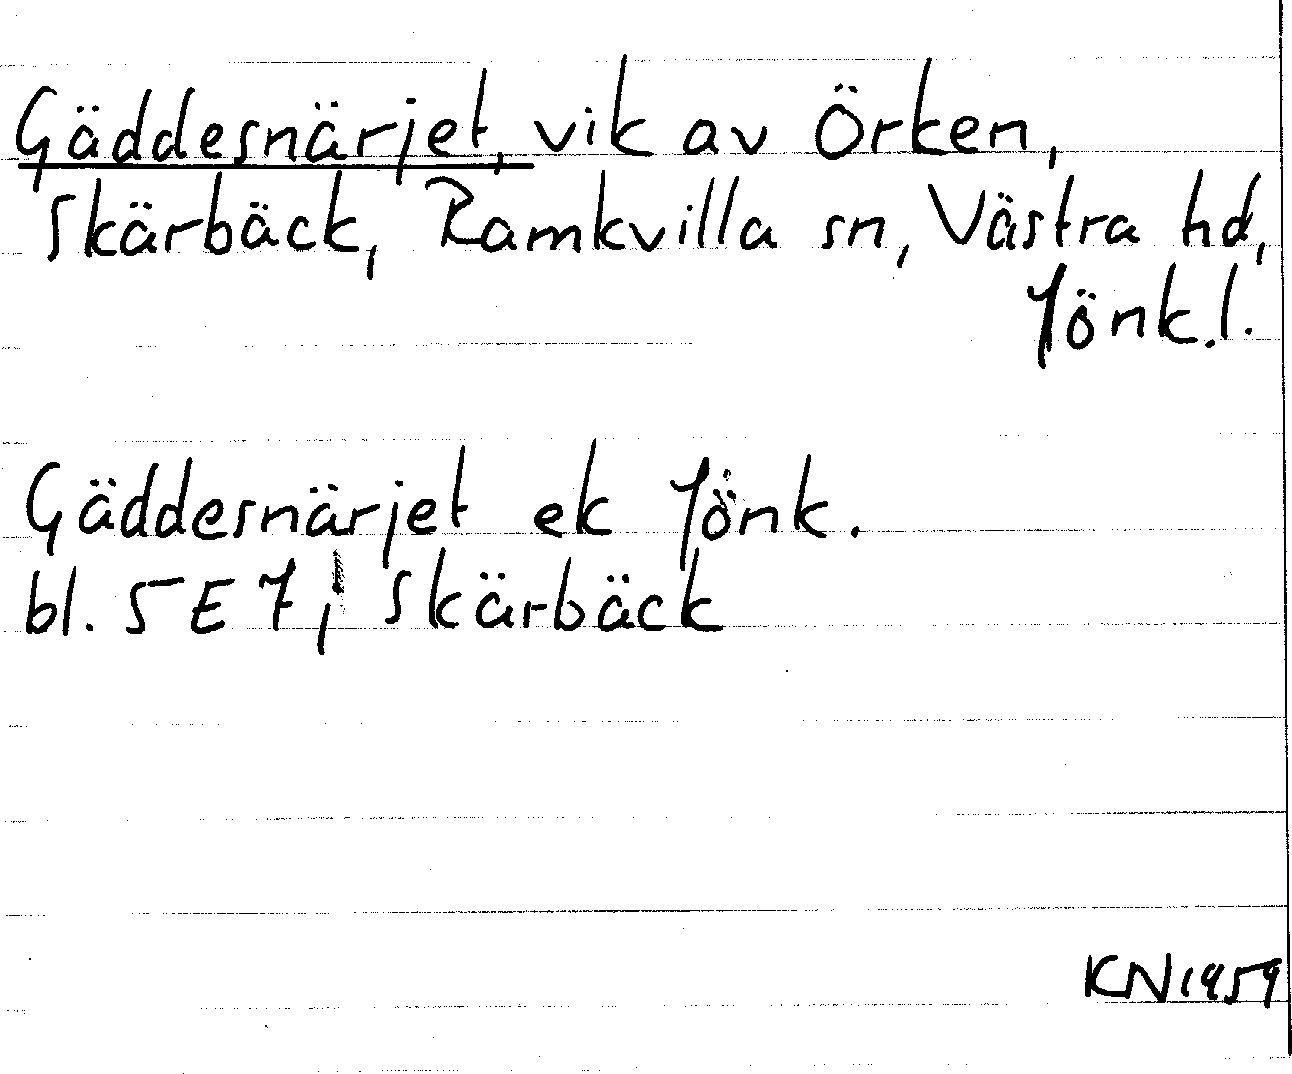 Gäddesnärjet, vik av Örken,
Skärbäck, Ramkvilla sn, Västra hd,
Jönk.l.
Gäddesnärjet ek Jönk.
bl. 5 E 7, Skärbäck
KN1959